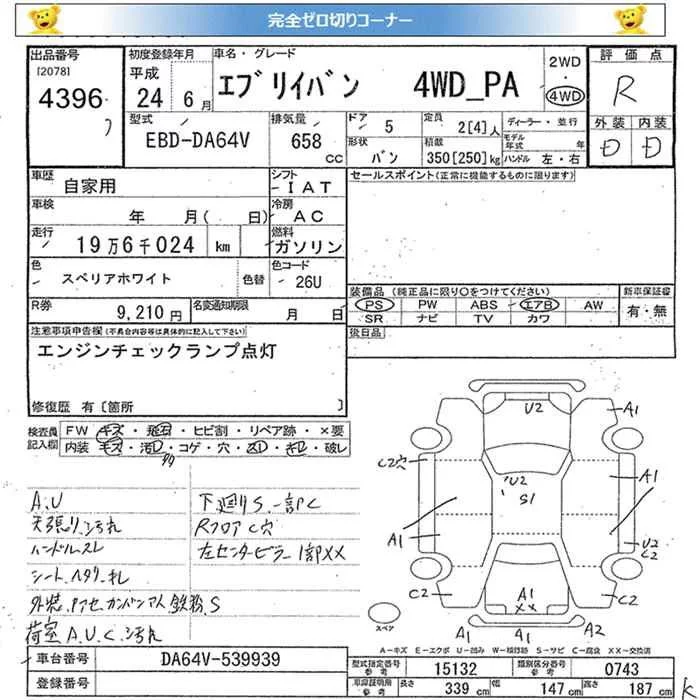 完全ゼロ切りコーナー
出品番号 初度登録年月 車名・グレード 評価点
[2078] 平成 エブリイバン 4WD_PA 2WD
・
4396 24 6月 4WD R
型式 排気量 ドア 5 定員 2[4]人 ディーラー・並行 外装 内装
EBD-DA64V 658 CC 形状 バン 積載 350[250]kg モデル年式 年 D D
ハンドル 左・右
車歴 自家用 シフト IAT セールスポイント(正常に機能するものに限ります)
車検 年 月( 日) 冷房 AC
走行 19万6千024 km 燃料 ガソリン
色 スペリアホワイト 色替 色コード 26U
装備品 (純正品に限り○をつけてください) 新車保証書
R券 9,210円 名変通知期限 月 日 PS PW ABS エアB AW 有・無
SR ナビ TV カワ
注意事項申告欄(不具合内容等は具体的に記入して下さい) 後日品
エンジンチェックランプ点灯
修復歴 有〔箇所 〕
検査員記入欄 FW キズ・飛石・ヒビ割・リペア跡・×要
内装 キズ・汚れ・コゲ・穴・スレ・キレ・破レ
A.U 下廻りS.一部C
天張り.汚れ RフロアC穴
ハンドル.スレ 左センターピラー1部XX
シート.ヘタリ.キレ
荷室A.U.C.汚れ
U2
A1
C2穴
U2
S1
A1
A1
U2
C2
C2
A1
XX
C2
スペア
A1 A1 A2
A-キズ E-エクボ U-凹み W-補修跡 S-サビ C-腐食 XX-交換済
車台番号 DA64V-539939 型式指定番号 参考 15132 類別区分番号 参考 0743
登録番号 車庫証明用 参考 長さ 339 cm 幅 147 cm 高さ 187 cm